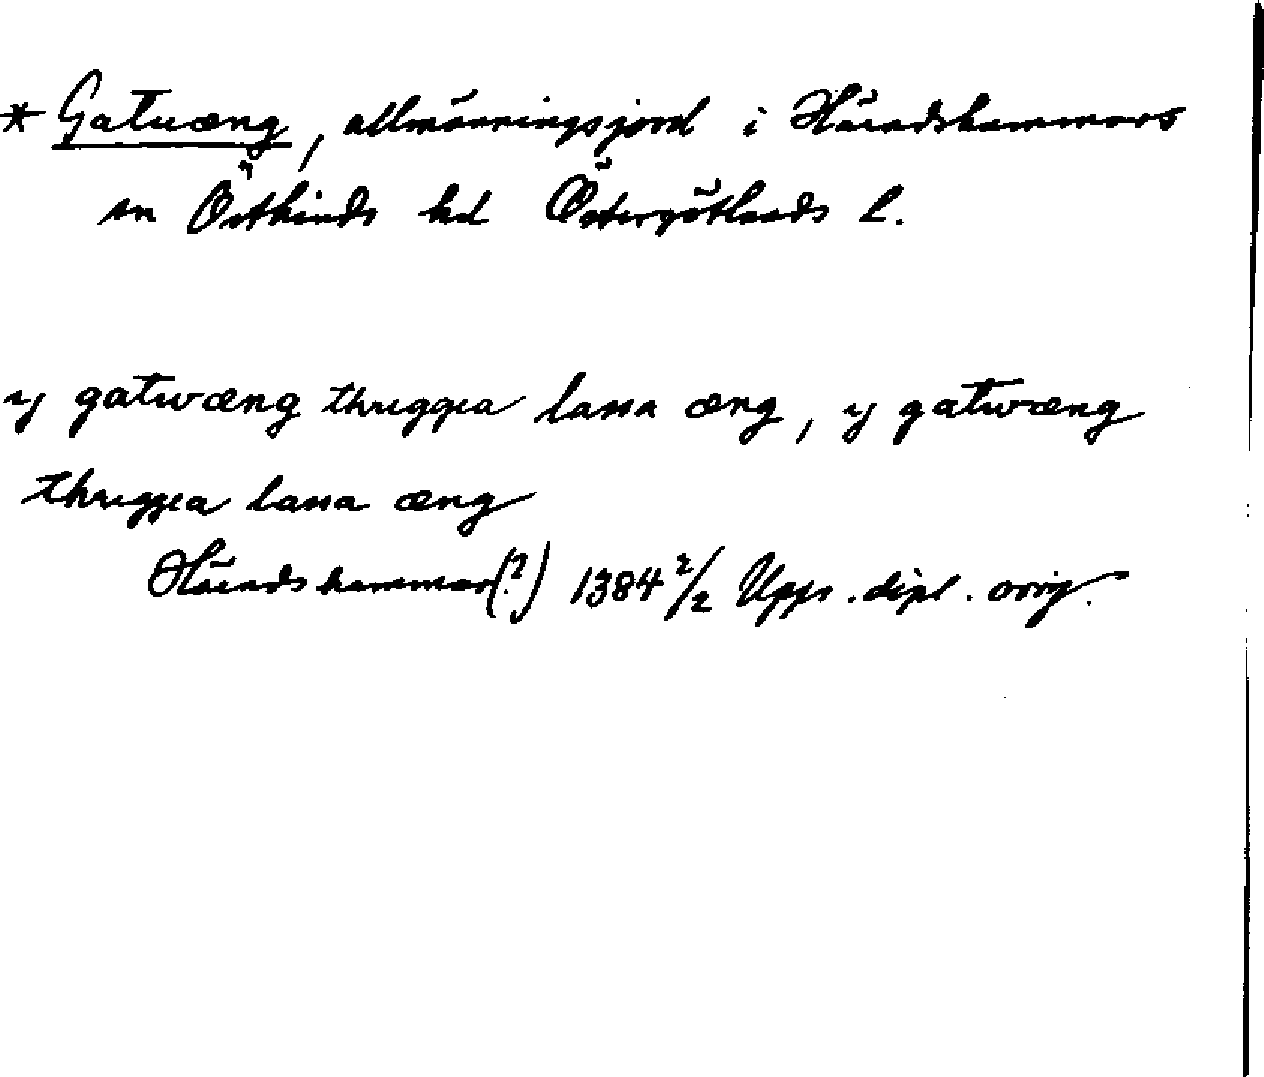 * Gatuæng, allmänningsjord i Häradshammars
sn Östkinds hd Östergötlands l.
y gatwæng thryggia lassa æng, y gatwæng
thryggia lassa æng
Häradshammar(?) 1384 2/2 Upps. dipl. orig.